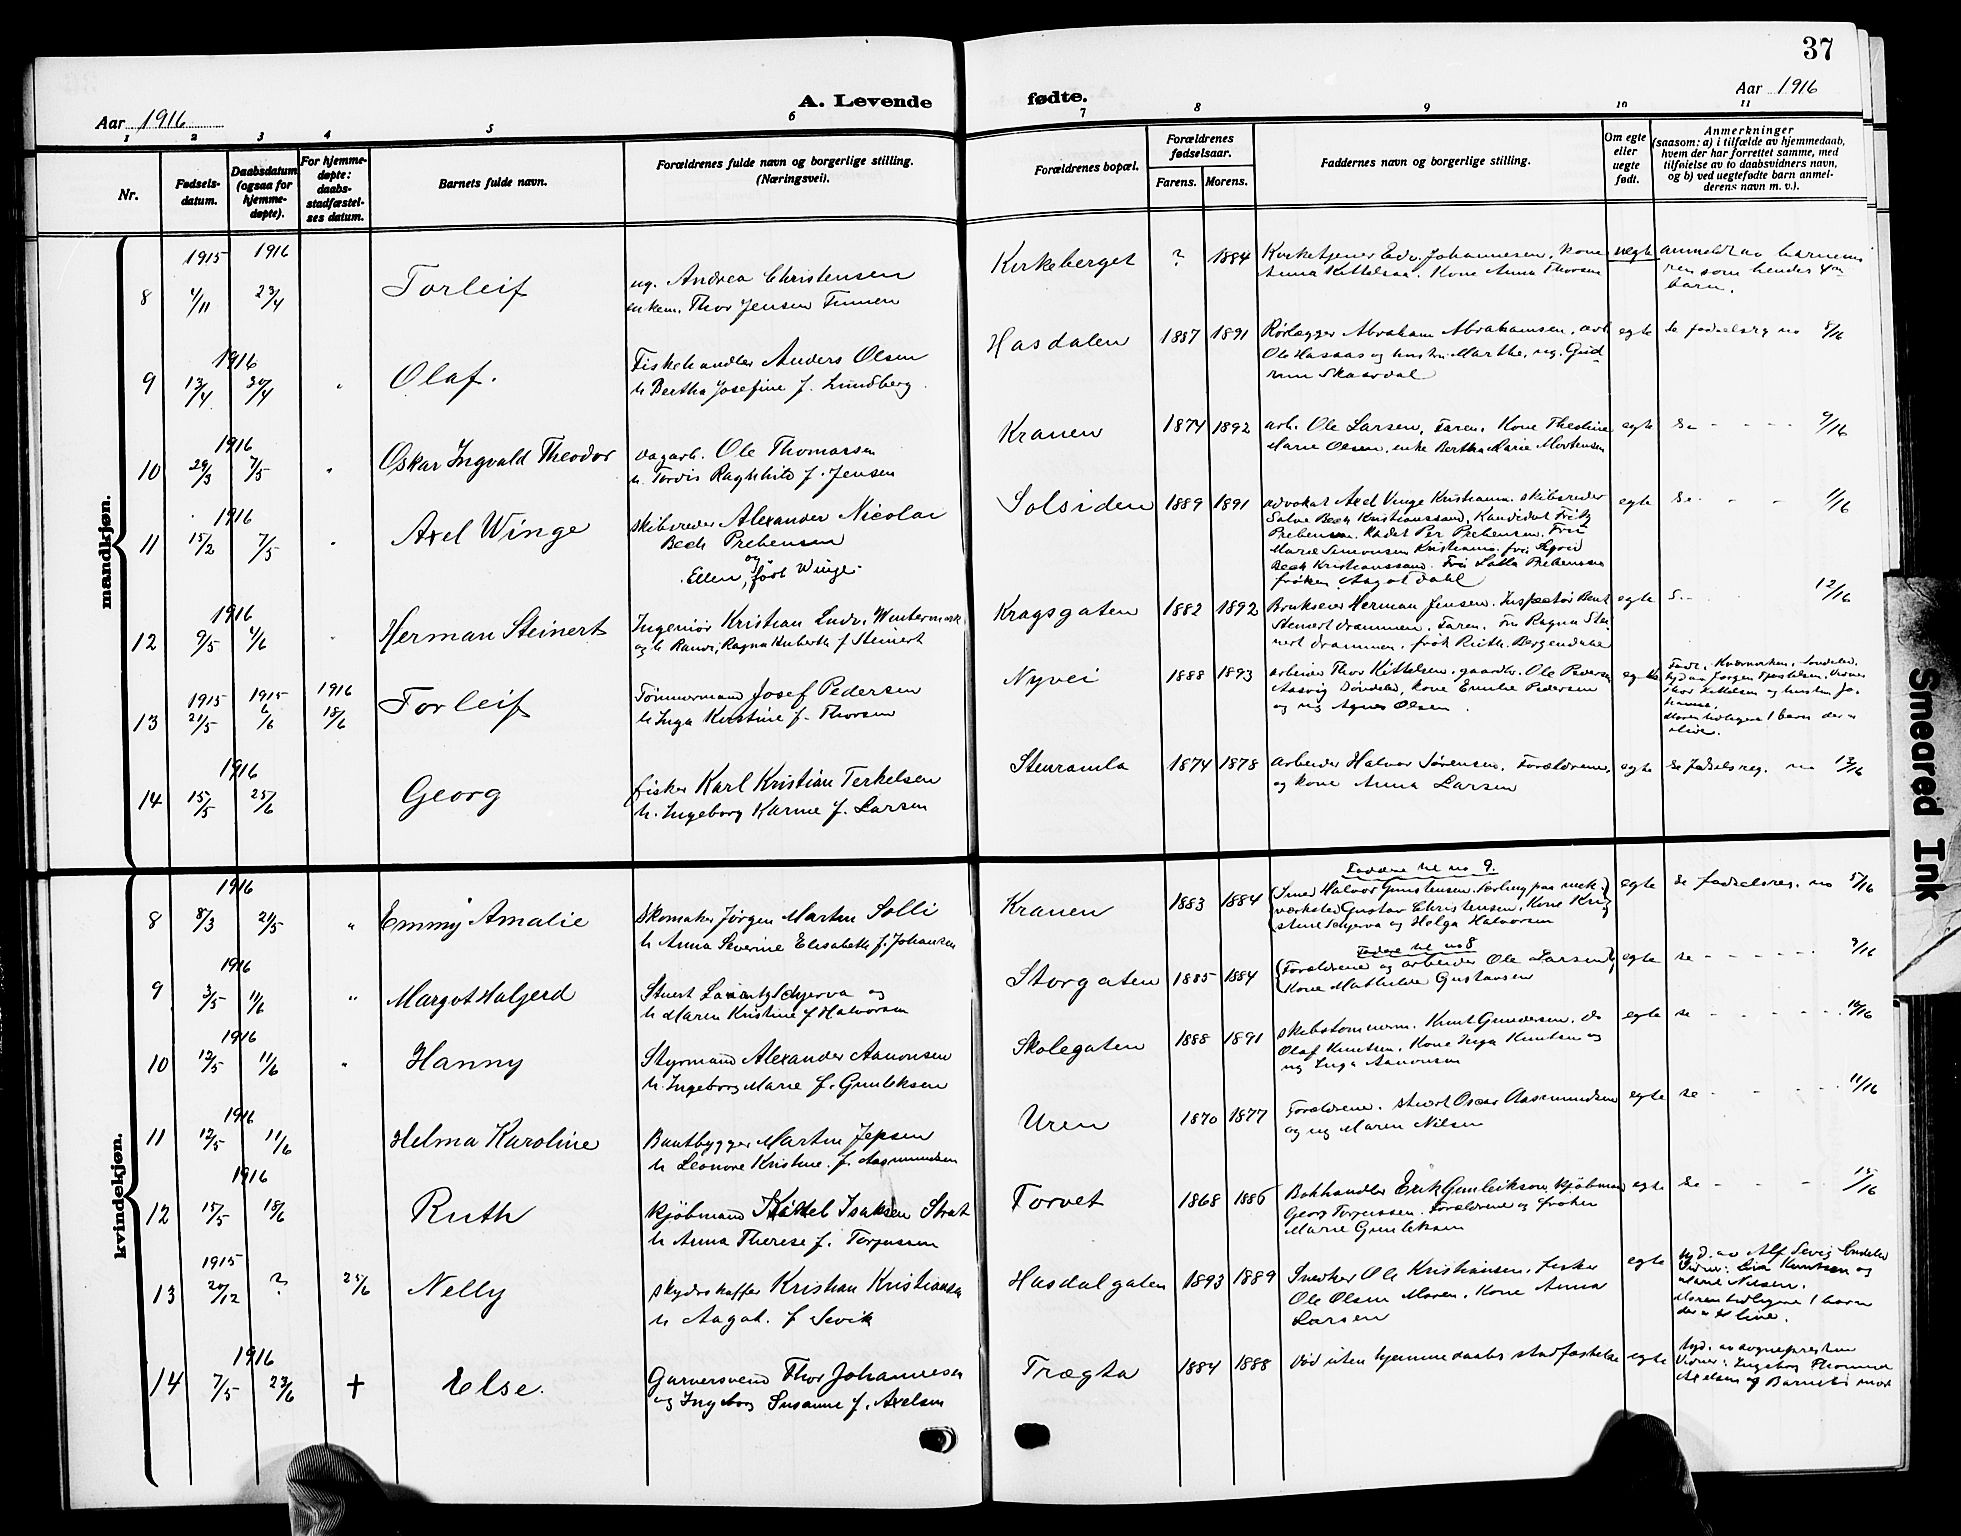 37
Aar 1916
A. Levende
fødte.
Aar 1916
1 2 3 4 5 6 7 8 9 10 11
Nr.
Fødsels-
datum.
Daabsdatum
(ogsaa for
hjemme-
døpte).
For hjemme-
døpte:
daabs-
stadfæstel-
ses datum.
Barnets fulde navn.
Forældrenes fulde navn og borgerlige stilling.
(Næringsvei).
Forældrenes bopæl.
Forældrenes
fødselsaar.
Farens. Morens.
Faddernes navn og borgerlige stilling.
Om egte
eller
uegte
født.
Anmerkninger
(saasom: a) i tilfælde av hjemmedaab,
hvem der har forrettet samme, med
tilføielse av to daabsvidners navn,
og b) ved uegtefødte barn anmel-
derens navn m. v.).
mandkjøn.
1915 1916
8 4/11 23/4 Torleif
ug. Andrea Christensen
enkem. Thor Jensen Tinnen
Kirkeberget ? 1884
Kirketjener Edv. Johannesen, kone
Anna Kittelsen. Kone Anna Thorsen
uegte
anmeldt av barnemo
ren som hendes 4de
barn.
1916
9 13/4 30/4 " Olaf.
Fiskehandler Anders Olsen
h. Bertha Josefine f. Lundberg.
Hasdalen 1887 1891
Rørlægger Abraham Abrahamsen, arb
Ole Hasaas og hustru Marthe, ug. Gud
run Skaardal
egte se fødselsreg no 8/16
1916
10 29/3 7/5 " Oskar Ingvald Theodor
dagarb. Ole Thomassen
h. Tordis Raghild f. Jensen
Kranen 1874 1892
arb. Ole Larsen, Faren, Kone Theoline
Marie Olsen, enke Bertha Marie Mortensen
egte se - - - - 9/16
1916
11 15/2 7/5 " Axel Winge
skibsreder Alexander Nicolai
Bech Prebensen
og
Ellen, født Winge.
Solsiden 1889 1891
advokat Axel Vinge Kristiania. skibsreder
Salve Bech Kristianssand, Kandidat Fritz
Prebensen. Kadet Per Prebensen. Fru
Marie Simonsen Kristiania. fru
Bech Kristianssand. Fru Lalla Prebensen
frøken Aagot Dahl
egte se - - - 1/16
1916
12 9/5 4/6 " Herman Steinert
Ingeniør Kristian Ludv. Wintermark
og h. Randi, Ragna Huberth f Steinert
Kragsgaten 1882 1892
Brukseier Herman Jensen. Inspektør Bent
Steinert Drammen. Faren. Fru Ragna Stei
nert Drammen, frøk Ruth Bergendahl
egte s. - - 12/16
1915 1915 1916
13 21/5 6/6 18/6 Torleif
Tømmermand Josef Pedersen
h. Inga Kristine f. Thorsen
Nyvei 1888 1893
arbeider Thor Kittelsen, gaardbr. Ole Pedersen
Aasvig Søndeled, kone Emilie Pedersen
og ug Agnes Olsen.
egte
Født, Kvernviken, Søndeled.
hjd av Jørgen
Thor Kittelsen og hustru Jo-
hanne.
Moren tidligere 1 barn der er
i live.
1916
14 15/5 25/6 Georg
fisker Karl Kristian Terkelsen
h. Ingeborg Karine f. Larsen
Stenramla 1874 1878
arbeider Halvor Sørensen, Forældrene,
og kone Anna Larsen
egte se fødselsreg. no 13/16
kvindekjøn.
1916
8 8/3 21/5 " Emmy Amalie
Skomaker Jørgen Martin Solli
h Anna Severine Elisabeth f. Johansen
Kranen 1883 1884
Faddere til no 9.
(Smed Halvor Gunstensen, Lærling paa mek.
værksted Gustav Christensen, Kone Kri
stine Schjerva og Helga Halvorsen
egte se fødselsreg. no 5/16
1916
9 3/5 11/6 " Margot Halgjerd
Stuert Lauritz Schjerva og
h Maren Kristine f Halvorsen
Storgaten 1885 1884
Faddere til no 8
(Forældrene og arbeider Ole Larsen
Kone Mathilde Gustavsen
egte se - - - - - - 9/16
1916
10 12/5 11/6 " Hanny
Styrmand Alexander Aanonsen
h. Ingeborg Marie f. Gunleksen
Skolegaten 1888 1891
skibstømmerm. Knut Gundersen, do
Olaf Knutsen, Kone Inga Knutsen og
ug Inga Aanonsen
egte se - - - - - - 10/16
1916
11 12/5 11/6 Helma Karoline
Baatbygger Martin Jepsen
h Leonore Kristine. f. Aasmundsen
Uren 1870 1877
Forældrene. stuert Oscar Aasmundsen
og ug Maren Nilsen
egte se - - - - - 11/16
1916
12 15/5 18/6 Ruth
Kjøbmand Kittel Isaksen Strat
h Anna Therese f. Torjussen
Torvet 1868 1886
Bokhandler Erik Gunleiksen, kjøbman
Georg Torjussen. Forældrene og frøken
Marie Gunleksen
egte se - - - - 15/16
1915
13 20/12 ? 25/6 Nelly
Skydsskaffer Kristian Kristiansen
h Aagot. f Sevik
Hasdalgaten 1893 1889
Snedker Ole Kristiansen. Fisker
Ole Olsen Moren, Kone Anna
Larsen
egte
hjd. av Alf Sevig Søndeled
Vidner: Lia Knutsen og
Marie Nilsen.
Moren tidligere 1 barn
der er i live.
1916
14 7/5 23/6 + Else.
Garversvend Thor Johannesen
og Ingeborg Susanne f. Axelsen
Trægta 1884 1888
Død uten hjemmedaabs stadfæstelse
egte
hjd. av sognepresten
Vidner: Ingeborg Thomine
Axelsen og Barnets mor
Smeared Ink